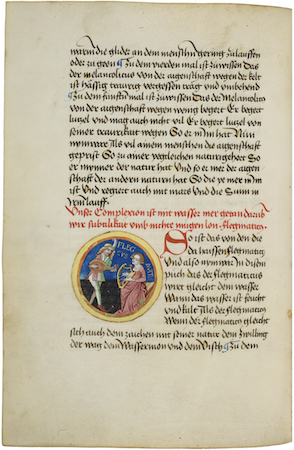 warm die glider an dem menschn gering zulauffen
oder zu geen ¶ Zu dem vierden mal ist zuwissen Das
der melancolicus von der aigenschafft wegen der kelt
ist hässig traurig vergessen träg und unbehend
¶ Zu dem funften mal ist zuwissen Das der Melancolicus
von der aigenschafft wegen wenig begert Er begert
luczel und mag auch nicht vil Er begert luczel von
seiner traurikait wegen So er nun hat Nun
nym war Als vil ainem menschen die aigenschafft
geprist So zu ainer ygleichen naturigheit So
er mynner der natur hat Und so er mer der aigen
schafft der andern naturn hat So die ye mer in im
ist Und regiert auch mit mars Und die Sunn in
irm lauff
Unser Complexion ist mit wasser mer getan darumb
wir subtilikait umb nicht mugen lon · flegmaticus ·
So ist das von den die
da haissen flegmatici
Und also nym war In disem
puch das der flegmaticus
wirt gleicht dem wasser
Wann das wasser ist feucht
und kalt Als der flegmaticus
Wenn der flegmaticus gleicht
sich auch dem zaichen mit seiner natur dem Zwilling
der wag dem Wasserman und dem Visch ¶ Zu dem
FLEG
MATI
CVS